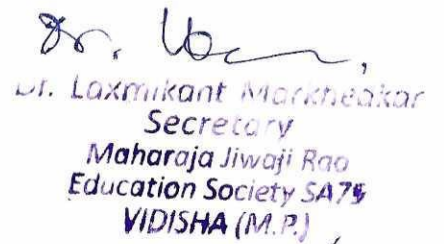 Dr. Laxmikant Markhedkar
Secretary
Maharaja Jiwaji Rao
Education Society SATI
VIDISHA (M.P.)